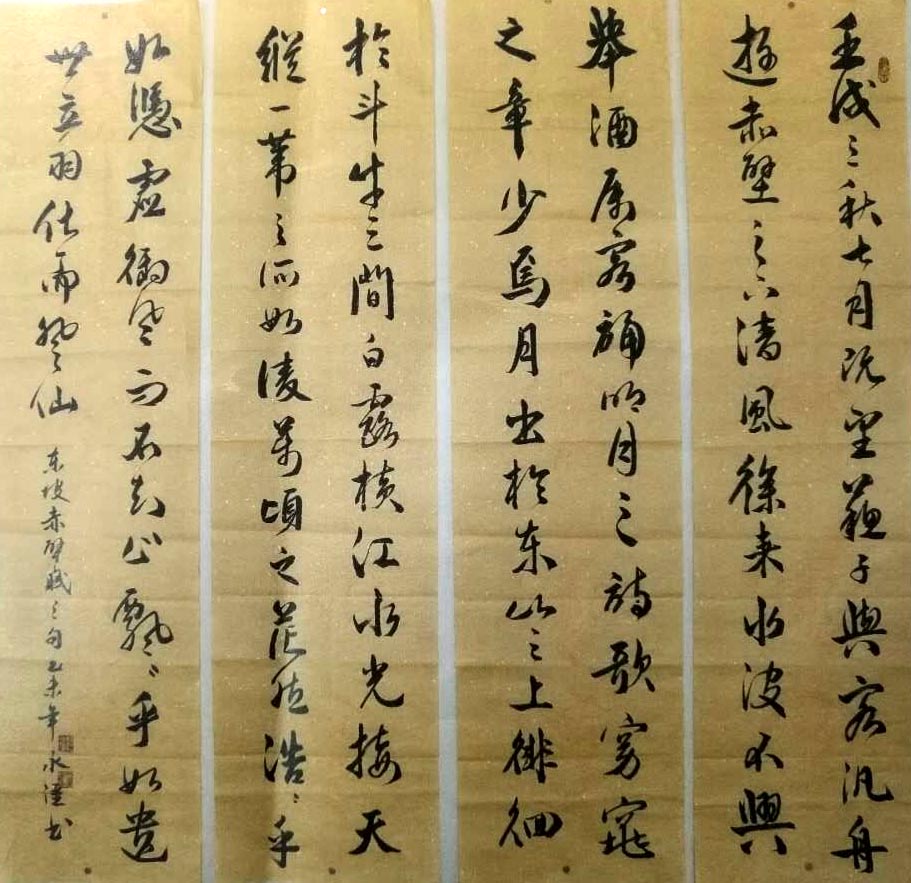 壬戌之秋七月既望蘇子與客汎舟
遊赤壁之下清風徐来水波不興
舉酒属客誦明月之詩歌窈窕
之章少焉月出於东山之上徘徊
於斗牛之間白露横江水光接天
縱一苇之所如淩萬頃之茫然浩〻乎
如憑虚御风而不知止飄〻乎如遗
世立羽化而登仙
东坡赤壁賦之句乙未年永书